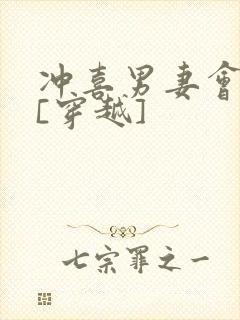 冲喜男妻會
[穿越]
七宗罪之一